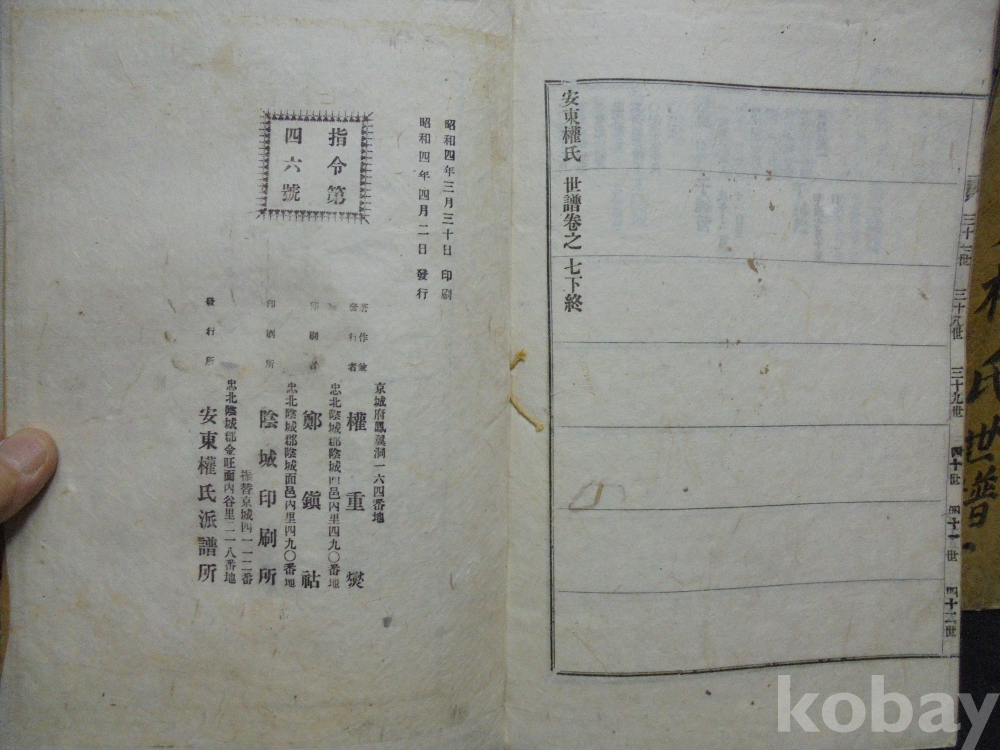 安東權氏世譜卷之七下終
三十八世
三十九世
四十世
四十一世
四十二世
氏世譜
指令第
四六號
昭和四年三月三十日印刷
昭和四年四月二日發行
京城府鳳翼洞一六四番地
著作兼
發行者 權重燮
忠北陰城郡陰城面邑內里四九〇番地
印刷者 鄭鎭祜
忠北陰城郡陰城面邑內里四九〇番地
印刷所 陰城印刷所
振替京城四一一二番
忠北陰城郡金旺面內谷里二一八番地
發行所 安東權氏派譜所
kobay